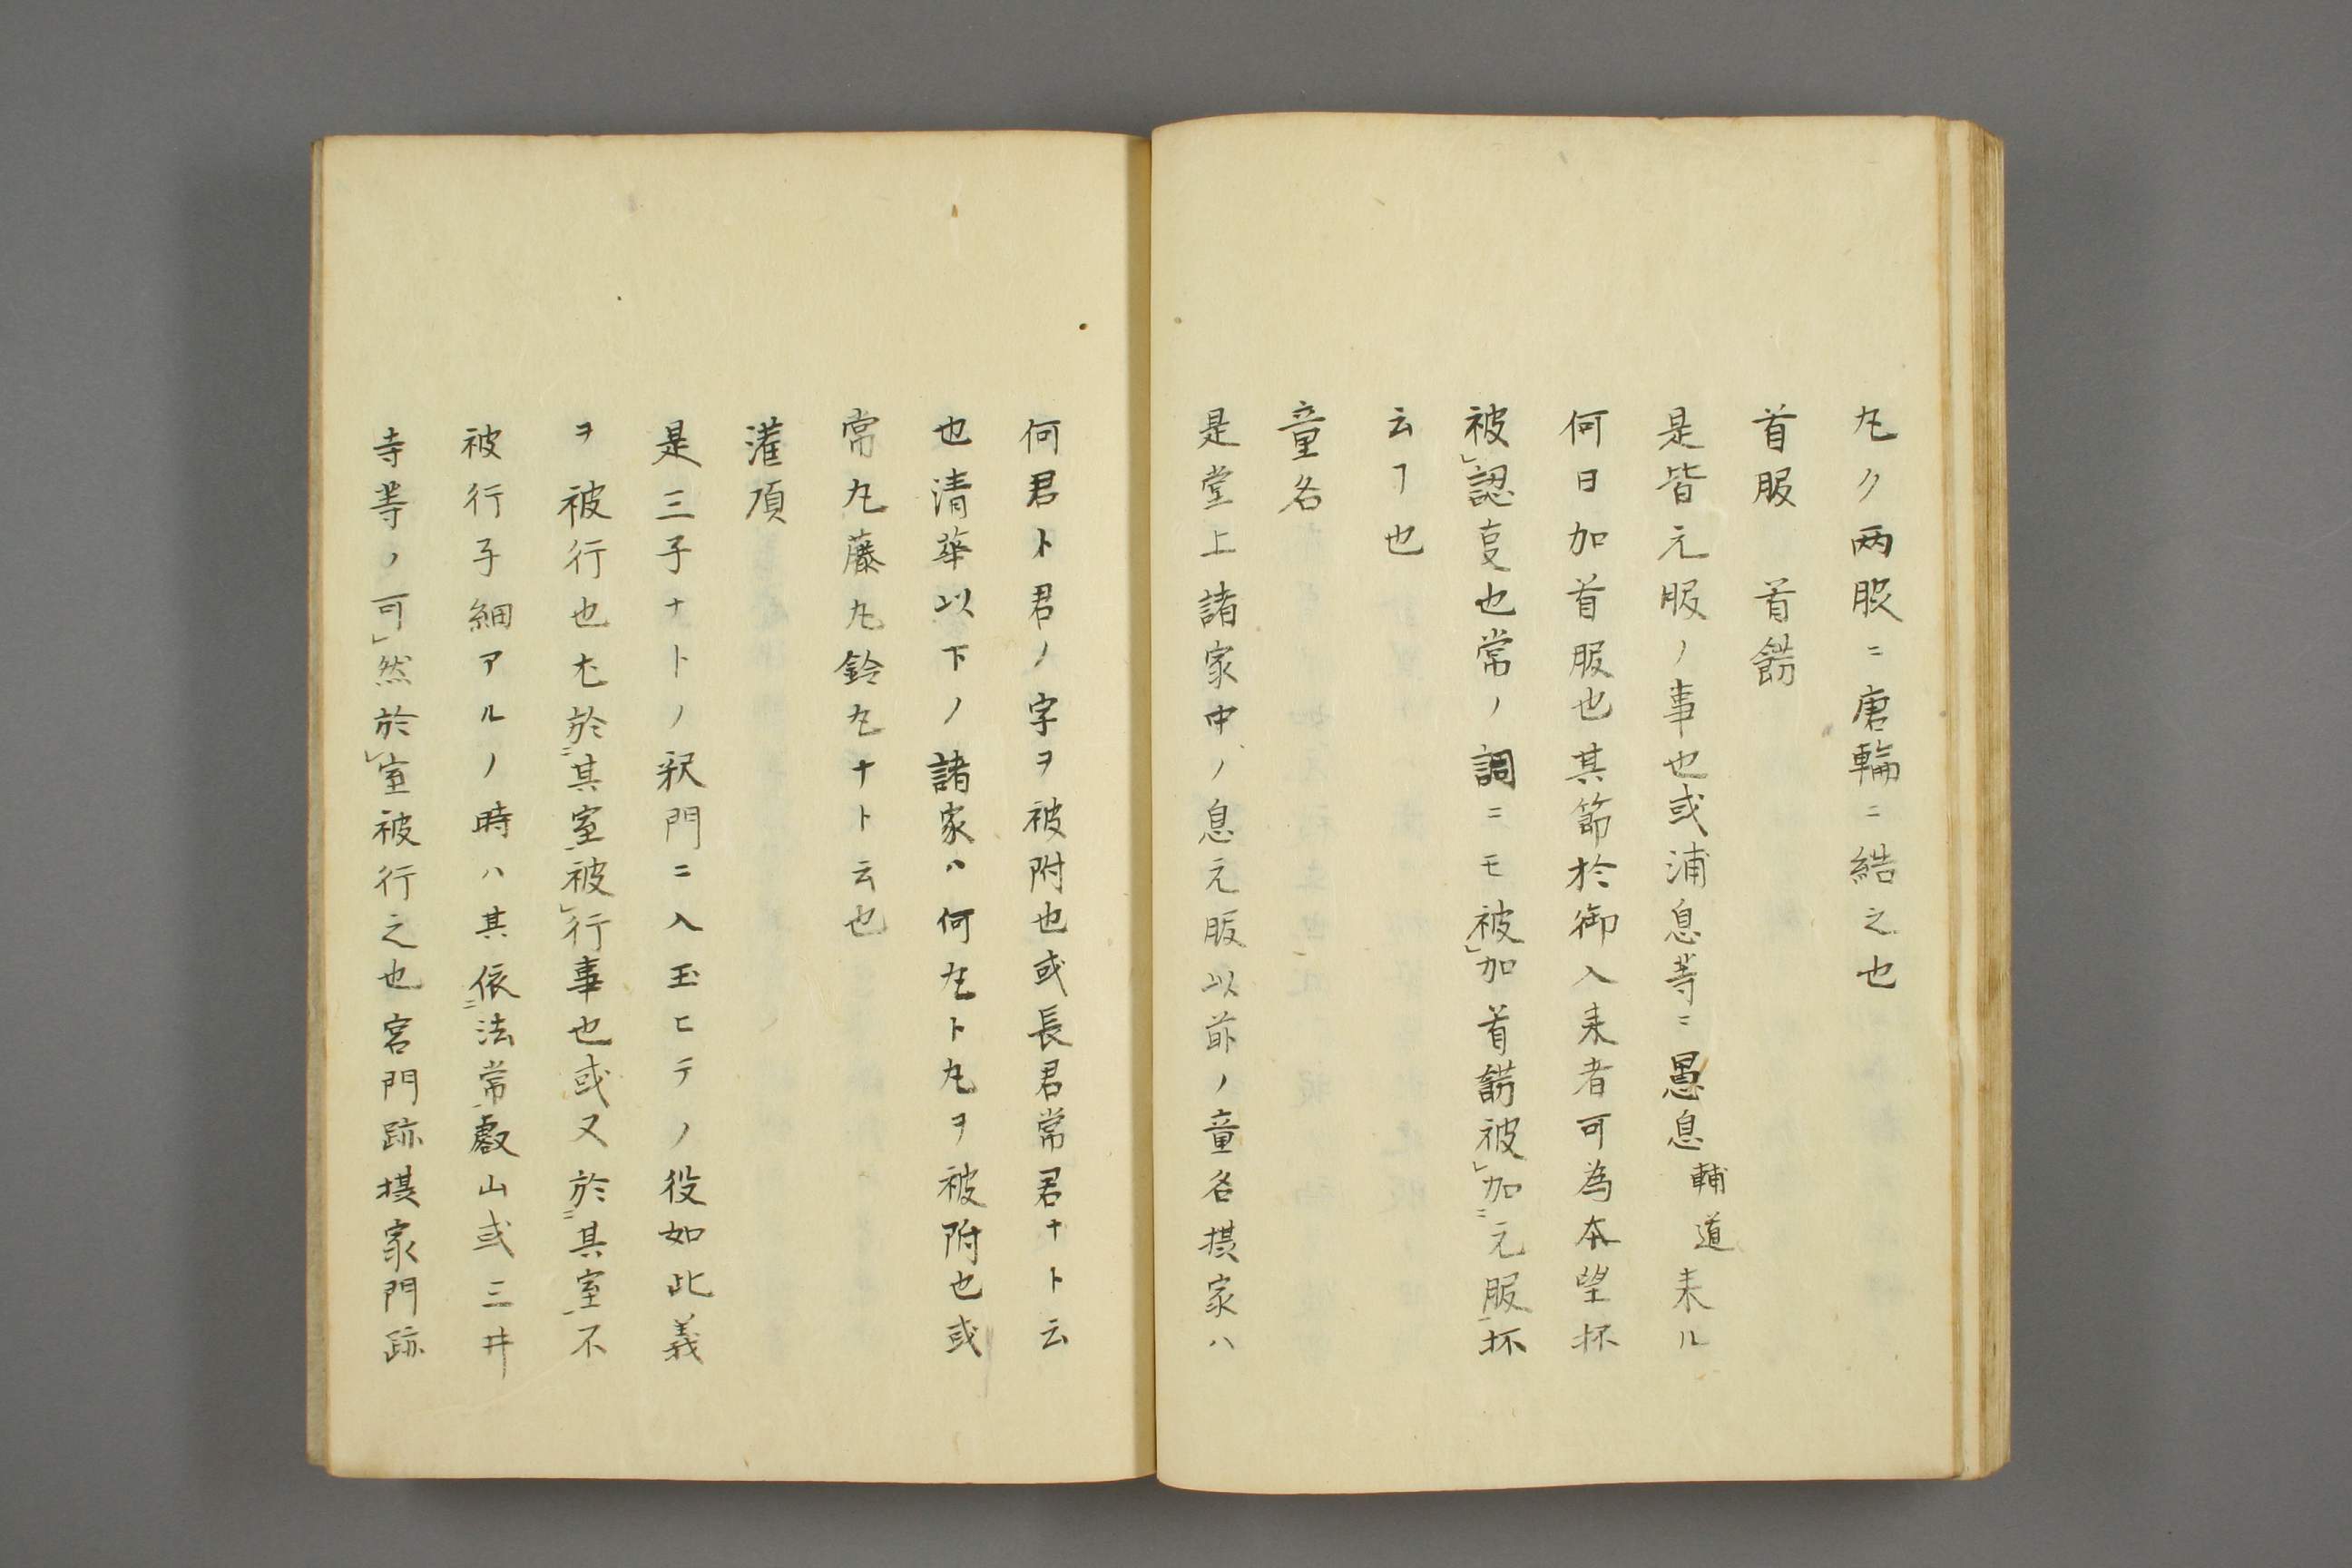 丸ク両股ニ唐輪ニ結之也
首服　首餝
是皆元服ノ事也或浦息等ニ愚息輔道来ル
何日加首服也其節於御入来者可為本望抔
被レ認叓也常ノ調ニモ被レ加首餝被レ加ニ元服一抔
云ヿ也
童名
是堂上諸家中ノ息元服以前ノ童名摂家ハ
何君ト君ノ字ヲ被附也或長君常君ナト云
也清華以下ノ諸家ハ何丸ト丸ヲ被附也或
常丸藤丸鈴丸ナト云也
灌頂
是三子ナトノ釈門ニ入玉ヒテノ役如此義
ヲ被行也尤於ニ其室一被レ行事也或又於ニ其室一不
被行子細アルノ時ハ其依ニ法常一叡山或三井
寺等ノ可レ然於レ室被行之也宮門跡摂家門跡